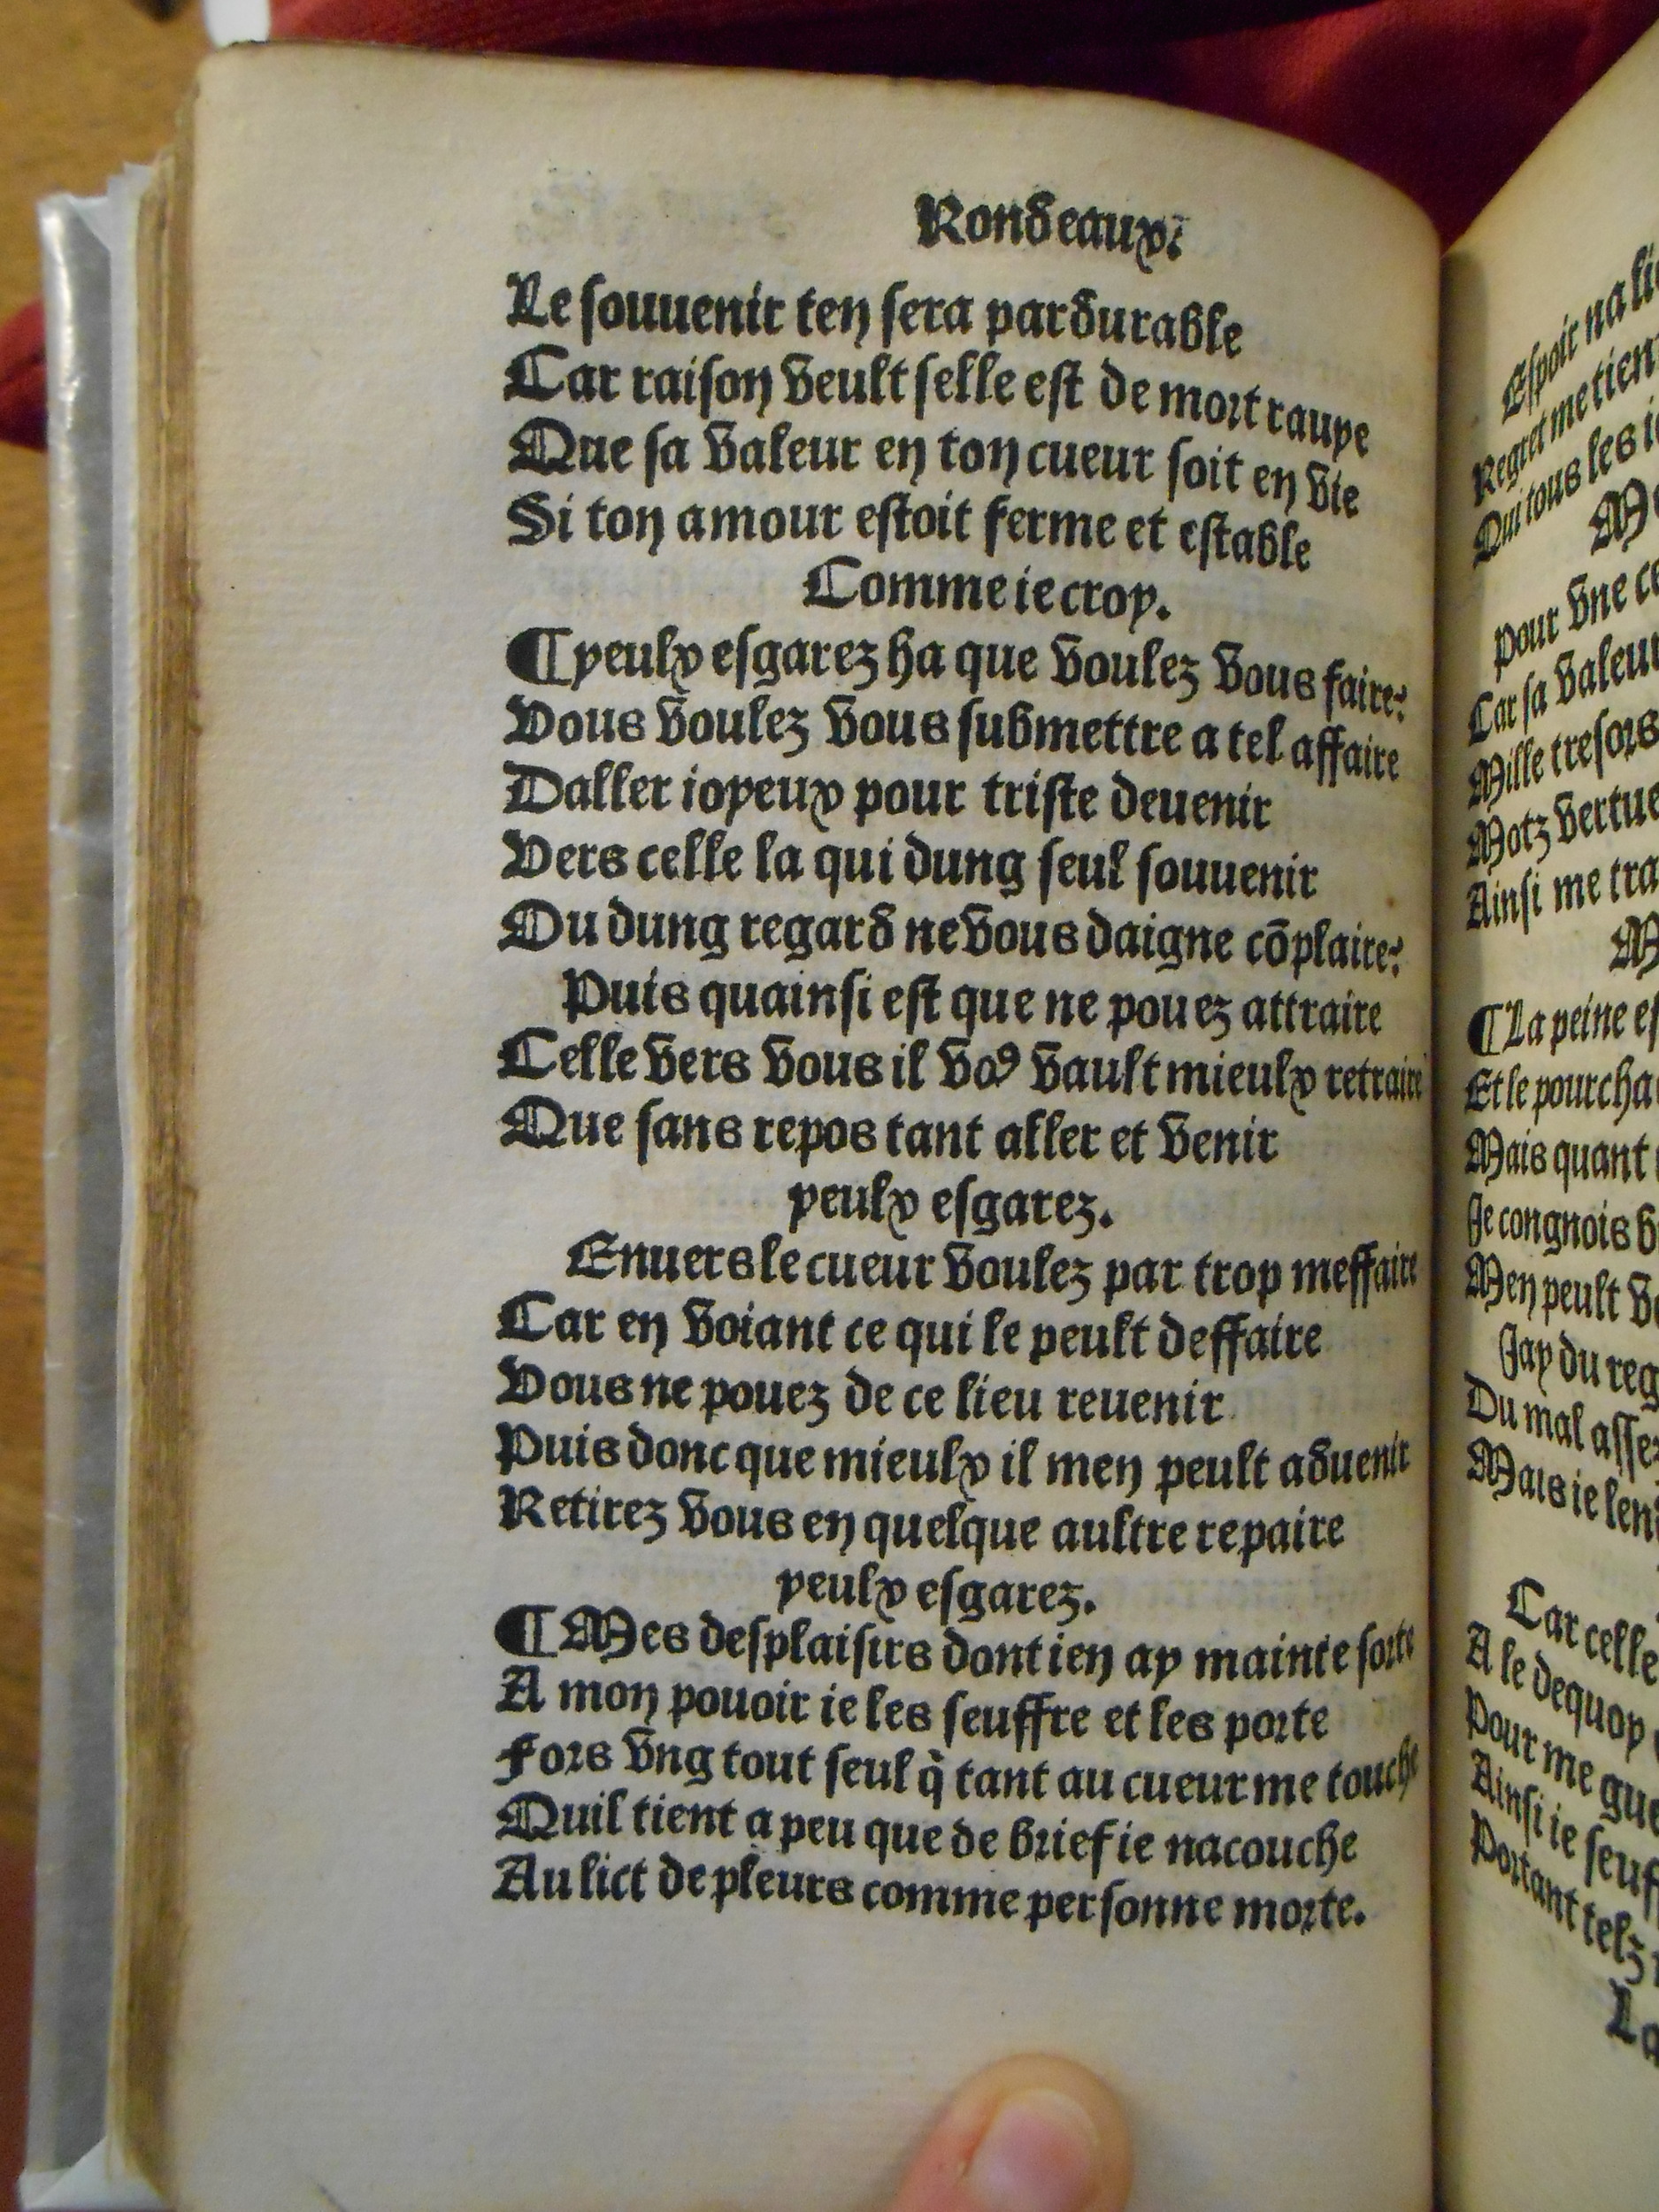 Rondeaux.
Le souuenir ten sera pardurable
Car raison veult selle est de mort rauye
Que sa valeur en ton cueur soit en vie
Si ton amour estoit ferme et estable
Comme ie croy.
¶ yeulx esgarez ha que voulez vous faire?
Vous voulez vous submettre a tel affaire
Daller ioyeux pour triste deuenir
Vers celle la qui dung seul souuenir
Ou dung regard ne vous daigne cōplaire?
Puis quainsi est que ne pouez attraire
Celle vers vous il voꝰ vault mieulx retraire
Que sans repos tant aller et venir
yeulx esgarez.
Enuers le cueur voulez par trop meffaire
Car en voiant ce qui le peult deffaire
Vous ne pouez de ce lieu reuenir
Puis donc que mieulx il men peult aduenir
Retirez vous en quelque aultre repaire
yeulx esgarez.
¶ Mes desplaisirs dont ien ay mainte sorte
A mon pouoir ie les seuffre et les porte
Fors vng tout seul q̇ tant au cueur me touche
Quil tient a peu que de brief ie nacouche
Au lict de pleurs comme personne morte.
Espoir na
Regret me tient
Qui tous les
pour vne
Car sa valeur
Mille tresors
Motz vertue
Ainsi me tra
¶ La peine es
Et le pourcha
Mais quant
Je congnois
Men peult
Jay du reg
Du mal asse
Mais ie len
Car celle
A le dequoy
Pour me gue
Ainsi ie seuf
Portant telz